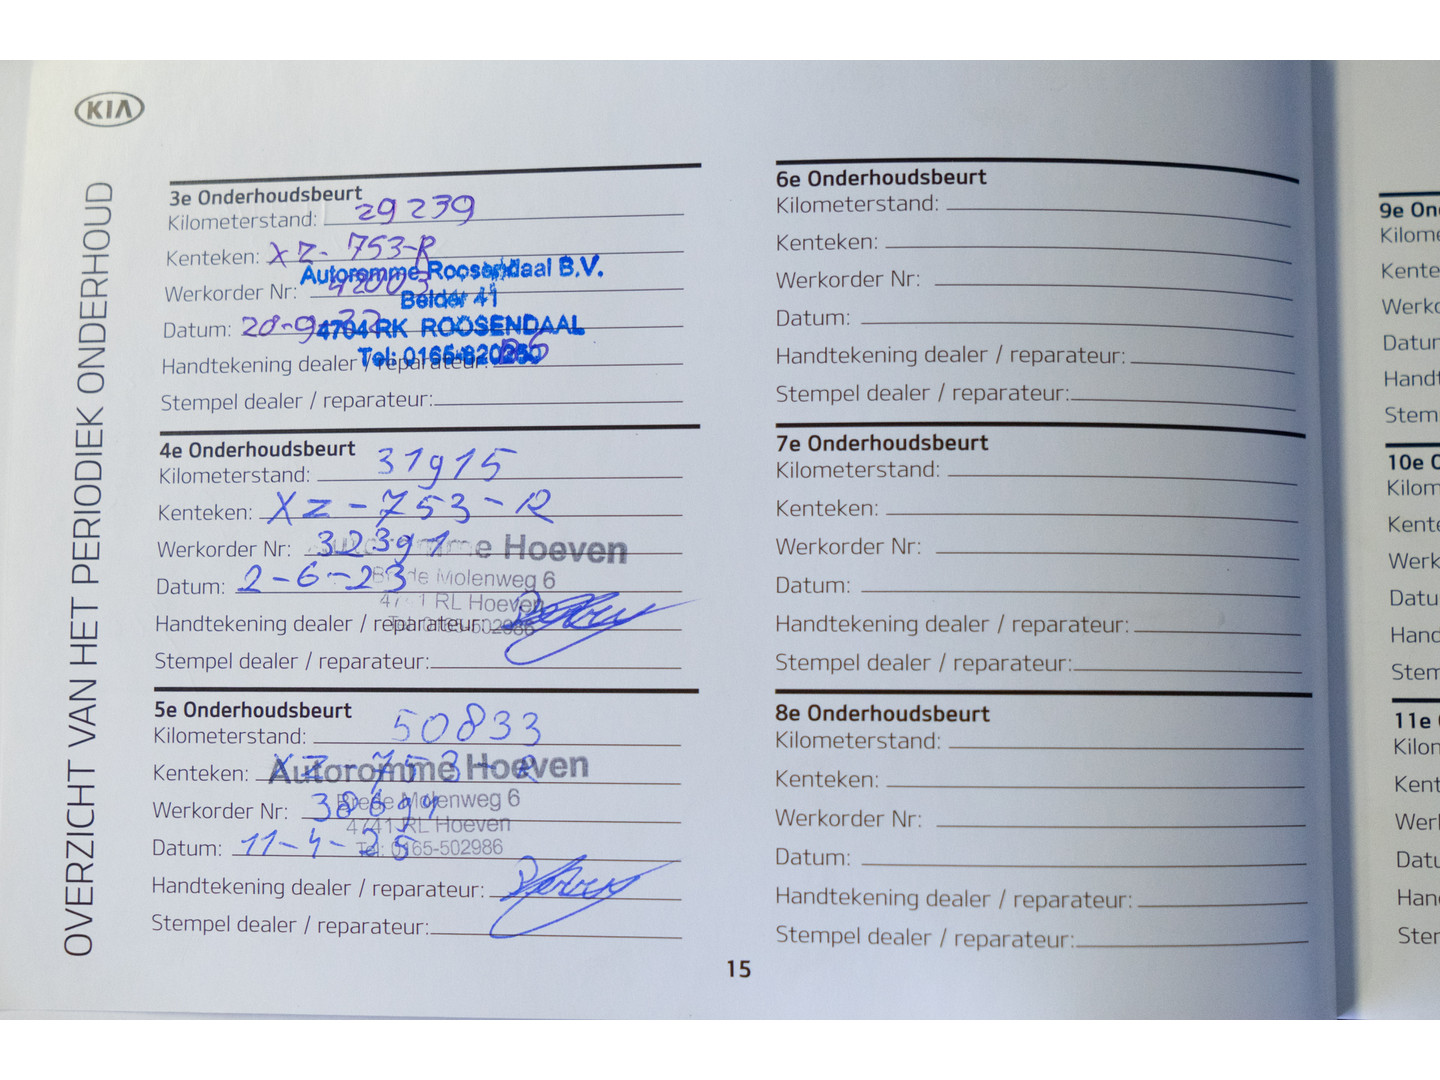 KIA
OVERZICHT VAN HET PERIODIEK ONDERHOUD
3e Onderhoudsbeurt
Kilometerstand: 29239
Kenteken: XZ-753-R
Autoromme Roosendaal B.V.
Werkorder Nr:
Belder 41
Datum: 20-9-22
4704 RK ROOSENDAAL
Tel: 0165-820250
Handtekening dealer / reparateur:
Stempel dealer / reparateur:
4e Onderhoudsbeurt
Kilometerstand: 31915
Kenteken: XZ-753-R
Werkorder Nr: 32391
Autoromme Hoeven
Datum: 2-6-23
Brede Molenweg 6
4741 RL Hoeven
Handtekening dealer / reparateur:
Tel: 0165-502986
Stempel dealer / reparateur:
5e Onderhoudsbeurt
Kilometerstand: 50833
Kenteken: XZ-753-R
Autoromme Hoeven
Werkorder Nr: 38691
Brede Molenweg 6
4741 RL Hoeven
Datum: 11-4-25
Tel: 0165-502986
Handtekening dealer / reparateur:
Stempel dealer / reparateur:
6e Onderhoudsbeurt
Kilometerstand:
Kenteken:
Werkorder Nr:
Datum:
Handtekening dealer / reparateur:
Stempel dealer / reparateur:
7e Onderhoudsbeurt
Kilometerstand:
Kenteken:
Werkorder Nr:
Datum:
Handtekening dealer / reparateur:
Stempel dealer / reparateur:
8e Onderhoudsbeurt
Kilometerstand:
Kenteken:
Werkorder Nr:
Datum:
Handtekening dealer / reparateur:
Stempel dealer / reparateur:
15
9e On
Kilome
Kente
Werkc
Datur
Handt
Stem
10e O
Kilom
Kente
Werk
Datu
Hand
Stem
11e
Kilon
Kent
Werl
Datu
Han
Ster